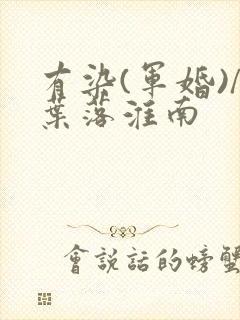 有染(軍婚)/
葉落淮南
會説話的螃蟹